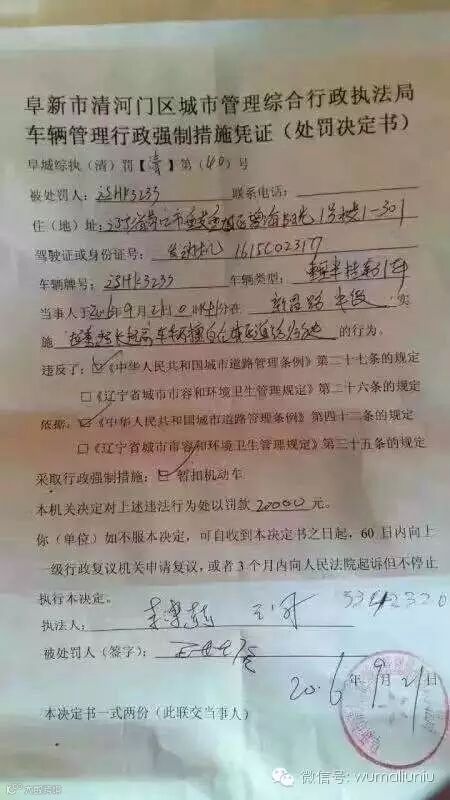 阜新市清河门区城市管理综合行政执法局
车辆管理行政强制措施凭证（处罚决定书）
阜城综执（清）罚【清】第（40）号
被处罚人：辽HK3233 联系电话：
住（地）址：辽宁省营口市 1号楼1-301
驾驶证或身份证号：发动机 1615C023177
车辆牌号：辽HK3233 车辆类型：半挂牵引车
当事人于2016年9月21日 时 分在 路 段 实
施 车辆擅自在城区道路行驶 的行为。
违反了：☑《中华人民共和国城市道路管理条例》第二十七条的规定
□《辽宁省城市市容和环境卫生管理规定》第二十六条的规定
依据：☑《中华人民共和国城市道路管理条例》第四十二条的规定
□《辽宁省城市市容和环境卫生管理规定》第三十五条的规定
采取行政强制措施：☑暂扣机动车
本机关决定对上述违法行为处以罚款20000元。
你（单位）如不服本决定，可自收到本决定书之日起，60日内向上
一级行政复议机关申请复议，或者3个月内向人民法院起诉但不停止
执行本决定。
执法人：
被处罚人（签字）：
2016年9月21日
本决定书一式两份（此联交当事人）
微信号：wumaliuniu